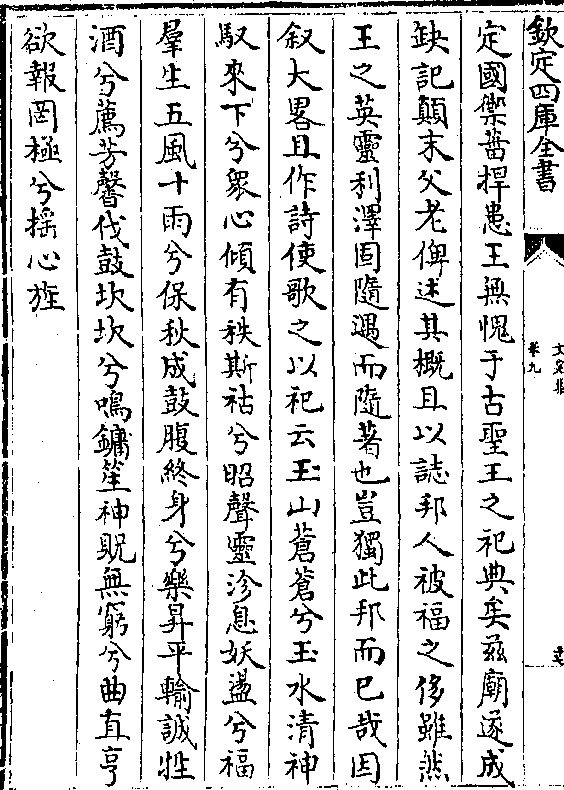 欽定四庫全書
卷九
定國禦菑捍患王無愧于古聖王之祀典矣兹廟遂成
缺記顛末父老俾述其概且以誌邦人被福之侈雖然
王之英靈利澤固隨遇而隨著也豈獨此邦而已哉因
叙大畧且作詩使歌之以祀云玉山蒼蒼兮玉水清神
馭來下兮衆心傾有秩斯祜兮昭聲靈沴息妖盪兮福
羣生五風十雨兮保秋成鼓腹終身兮樂昇平輸誠牲
酒兮薦芳馨伐鼓坎坎兮鳴鏞笙神貺無窮兮曲直亨
欲報罔極兮揺心旌